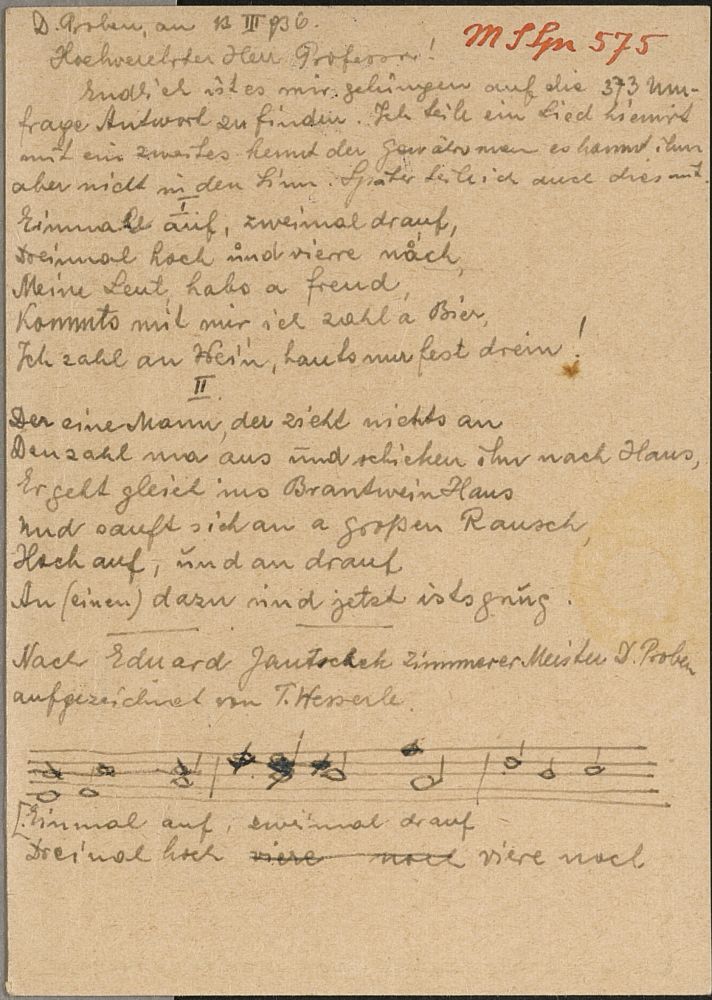 D. Proben, an 13 III 936.
M S Spr 575
Hochverehrter Herr Professor!
Endlich ist es mir gelungen auf die 373 Um-
frage Antwort zu finden. Ich teile ein Lied hiemit
mit ein zweites kennt der Gewährsmann es kommt ihm
aber nicht in den Sinn. Später teile ich auch dies mit.
I
Einmahl auf, zweimal drauf,
Dreimal hoch und vierre nåch,
Meine Leut, habo a freud,
Kommts mit mir ich zahl a Bier,
Ich zahl an Wein, hauts nur fest drein!
II
Der eine Mann, der zieht nichts an
Den zahl ma aus und schicken ihn nach Haus,
Er geht gleich ins BrantweinHaus
und sauft sich an a großen Rausch,
Hoch auf, und an drauf
An (einen) dazu und jetzt ists gnug.
Nach Eduard Jantschek ZimmererMeister D. Proben
aufgezeichnet von T.
[Einmal auf, zweimal drauf
Dreimal hoch viere noch viere noch